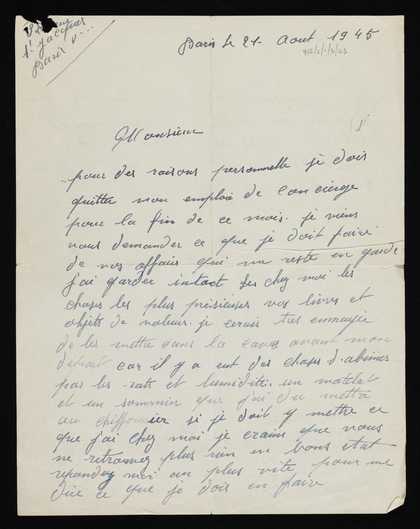 St Jacques
Paris V
Paris le 21 Aout 1945
Monsieur
pour des raisons personnelle je dois
quitter mon emploi de concierge
pour la fin de ce mois. je viens
vous demander ce que je doit faire
de vos affaires qui me reste en garde
j'ai garder intact chez moi les
choses les plus présieuses vos livres et
objets de valeurs. je serais tres ennuyée
de les mettre dans la cave avant mon
départ car il y a eut des choses d'abimer
par les rats et lumidité. un matelas
et un sommier que j'ai du mettre
au chiffonnier si je doit y mettre ce
que j'ai chez moi je crains que vous
ne retrouvez plus rien en bons état
repondez moi au plus vite pour me
dire ce que je dois en faire